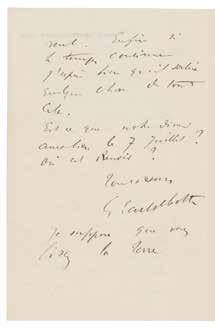 vent. Enfin si
le temps continue
j'espère bien qu'il sortira
quelque chose de tout
cela.
Est ce que notre dîner
aura lieu le 7 Juillet ?
Où est Renoir ?
Tout à vous
G Caillebotte
Je suppose que vous
lisez la Terre